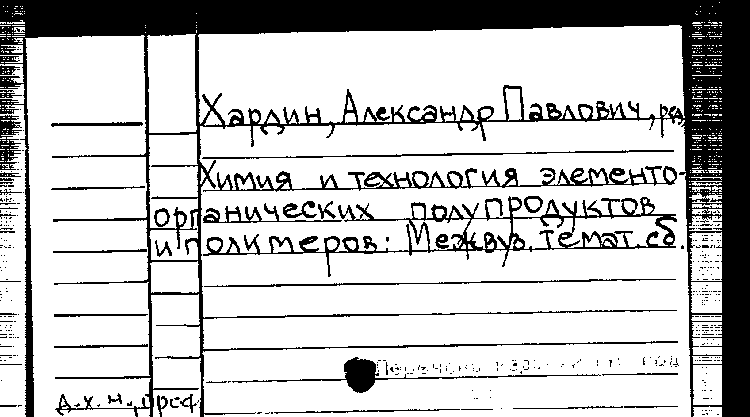 Хардин, Александр Павлович, ред.
Химия и технология элементо-
органических полупродуктов
и полимеров: Межвуз. темат. сб.
д.х.н., проф